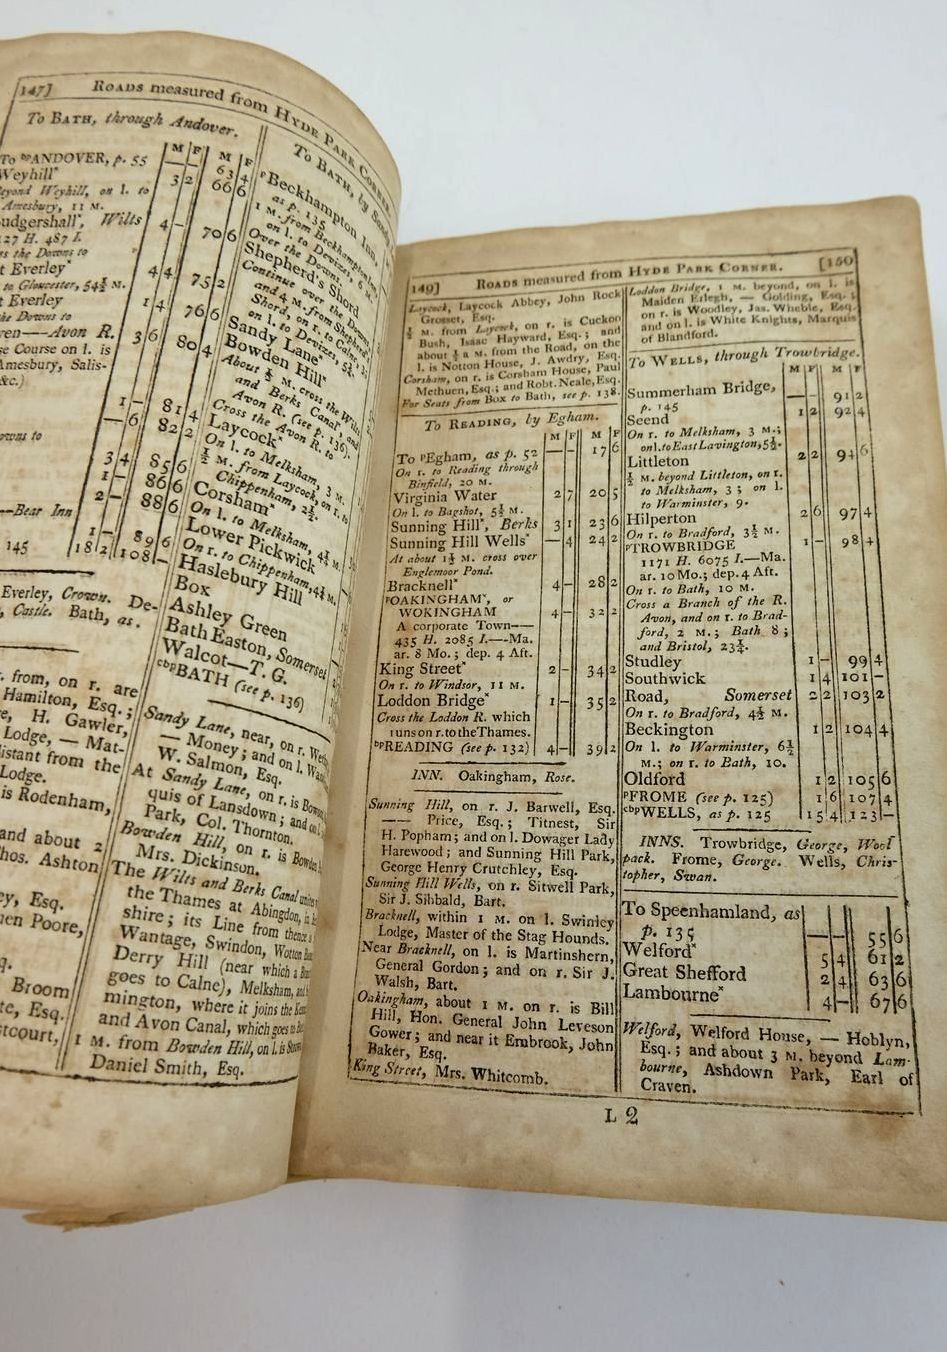 [147] ROADS measured from HYDE PARK CORNER.
To BATH, through Andover.
M F M F
To bpANDOVER, p. 55 — — 63 4
Weyhill* 3 2 66 6
Beyond Weyhill, on l. to
Amesbury, 11 M.
Ludgershall*, Wilts 4 – 70 6
127 H. 487 I.
the Downs to
Everley* 4 4 75 2
to Gloucester, 54½ M.
Everley 1 4 76 6
the Downs to
—Avon R. 3 6 80 4
Course on l. is
Amesbury, Salis-
&c.)
1 – 81 4
– 6 82 2
Downs to
3 4 85 6
1 – 86 6
2 – 88 6
—Bear Inn
1 – 89 6
145 18 2 108 –
Everley, Crown. De-
Castle. Bath, as
from, on r. are
Hamilton, Esq.;
H. Gawler,
Lodge, — Mat-
distant from the
Lodge.
is Rodenham,
and about 2
Thos. Ashton
Esq.
Poore,
Broom
Esq.
To BATH, by Sandy
PBeckhampton Inn,
as p. 135
1 M. from Beckhampton
on l. to Devizes, 6 M.
Over the Downs.
Shepherd's Shord
Continue over the Downs,
and 4 M. from Shepherd's
Shord, on r. to Calne, 3;
on l. to Devizes, 5¼.
Sandy Lane*
Bowden Hill*
About ½ M. cross the Wilts
and Berks Canal, and
Avon R. (see p. 136).
Laycock*
Cross the Avon R. to
On l. to Melksham, 3 M.
½ M. from Laycock, on r. to
Chippenham, 2½.
Corsham*
On l. to Melksham, 4¾ M.
Lower Pickwick
On r. to Chippenham, 4¾ M.
Haslebury Hill
Box
Ashley Green
Bath Easton, Somerset
Walcot—T. G.
cbpBATH (see p. 136)
Sandy Lane, near, on r.
— Money; and on l. Wans
W. Salmon, Esq.
At Sandy Lane, on r. is Bowood
quis of Lansdown; and on l.
Park, Col. Thornton.
Bowden Hill, on r. is Bowden
Mrs. Dickinson.
The Wilts and Berks Canal unites
the Thames at Abingdon, in
shire; its Line from thence is
Wantage, Swindon, Wotton
Derry Hill (near which a
goes to Calne), Melksham, and
mington, where it joins the
and Avon Canal, which goes to
1 M. from Bowden Hill, on l. is
Daniel Smith, Esq.
149] ROADS measured from HYDE PARK CORNER. [150
Laycock, Laycock Abbey, John Rock
Grosset, Esq.
½ M. from Laycock, on r. is Cuckoo
Bush, Isaac Hayward, Esq.; and
about ½ a M. from the Road, on the
l. is Notton House, J. Awdry, Esq.
Corsham, on r. is Corsham House, Paul
Methuen, Esq.; and Robt. Neale, Esq.
For Seats from Box to Bath, see p. 138.
To READING, by Egham.
M F M F
To PEgham, as p. 52 — — 17 6
On r. to Reading through
Binfield, 20 M.
Virginia Water 2 7 20 5
On l. to Bagshot, 5½ M.
Sunning Hill*, Berks 3 1 23 6
Sunning Hill Wells* — 4 24 2
At about 1½ M. cross over
Englemoor Pond.
Bracknell* 4 – 28 2
POAKINGHAM*, or
WOKINGHAM 4 – 32 2
A corporate Town——
435 H. 2085 I.—Ma.
ar. 8 Mo.; dep. 4 Aft.
King Street* 2 – 34 2
On r. to Windsor, 11 M.
Loddon Bridge* 1 – 35 2
Cross the Loddon R. which
runs on r. to the Thames.
bpREADING (see p. 132) 4 – 39 2
INN. Oakingham, Rose.
Sunning Hill, on r. J. Barwell, Esq.
—— Price, Esq.; Titnest, Sir
H. Popham; and on l. Dowager Lady
Harewood; and Sunning Hill Park,
George Henry Crutchley, Esq.
Sunning Hill Wells, on r. Sitwell Park,
Sir J. Sibbald, Bart.
Bracknell, within 1 M. on l. Swinley
Lodge, Master of the Stag Hounds.
Near Bracknell, on l. is Martinshern,
General Gordon; and on r. Sir J.
Walsh, Bart.
Oakingham, about 1 M. on r. is Bill
Hill, Hon. General John Leveson
Gower; and near it Embrook, John
Baker, Esq.
King Street, Mrs. Whitcomb.
Loddon Bridge, 1 M. beyond, on l. is
Maiden Erlegh, — Golding, Esq.;
on r. is Woodley, Jas. Wheble, Esq.
and on l. is White Knights, Marquis
of Blandford.
To WELLS, through Trowbridge.
M F M F
Summerham Bridge,
p. 145 — — 91 2
Seend 1 2 92 4
On r. to Melksham, 3 M.;
on l. to East Lavington, 5½.
Littleton 2 2 94 6
½ M. beyond Littleton, on r.
to Melksham, 3; on l.
to Warminster, 9.
Hilperton 2 6 97 4
On r. to Bradford, 3½ M.
PTROWBRIDGE 1 – 98 4
1171 H. 6075 I.—Ma.
ar. 10 Mo.; dep. 4 Aft.
On r. to Bath, 10 M.
Cross a Branch of the R.
Avon, and on r. to Brad-
ford, 2 M.; Bath 8;
and Bristol, 23¼.
Studley 1 – 99 4
Southwick 1 4 101 –
Road, Somerset 2 2 103 2
On r. to Bradford, 4½ M.
Beckington 1 2 104 4
On l. to Warminster, 6½
M.; on r. to Bath, 10.
Oldford 1 2 105 6
PFROME (see p. 125) 1 6 107 4
cbpWELLS, as p. 125 15 4 123 –
INNS. Trowbridge, George, Wool
pack. Frome, George. Wells, Chris-
topher, Swan.
To Speenhamland, as
p. 135 — — 55 6
Welford* 5 4 61 2
Great Shefford 2 4 63 6
Lambourne* 4 – 67 6
Welford, Welford House, — Hoblyn,
Esq.; and about 3 M. beyond Lam-
bourne, Ashdown Park, Earl of
Craven.
L 2